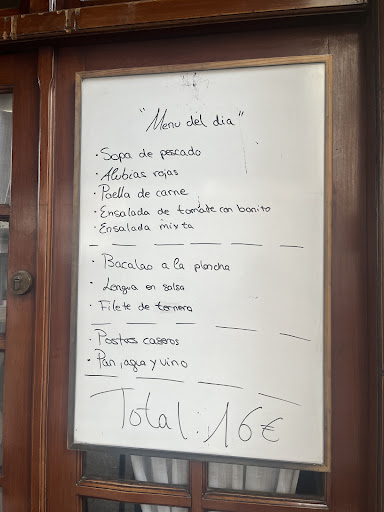 "Menu del dia"
· Sopa de pescado
· Alubias rojas
· Paella de carne
· Ensalada de tomate con bonito
· Ensalada mixta
· Bacalao a la plancha
· Lengua en salsa
· Filete de ternera
· Postres caseros
· Pan, agua y vino
Total: 16€